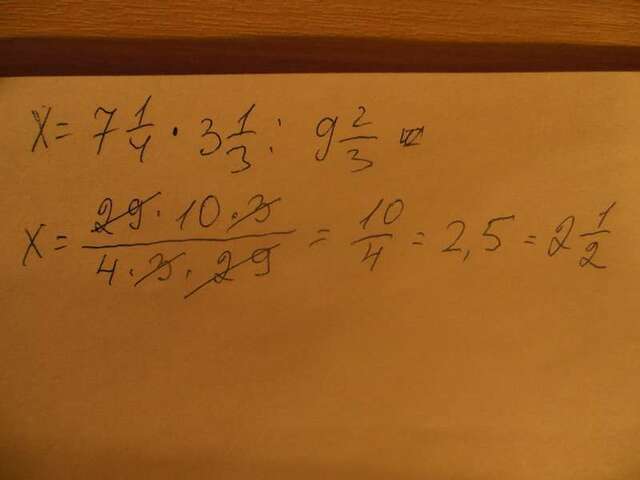 X = 7 1/4 · 3 1/3 : 9 2/3
X = 29 · 10 · 3 / 4 · 3 · 29 = 10/4 = 2,5 = 2 1/2